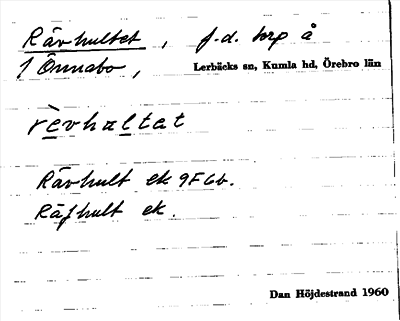 Rävhultet, f.d. torp å
1 Önnabo, Lerbäcks sn, Kumla hd, Örebro län
rèvhaltat
Rävhult ek 9F6b.
Räfhult ek.
Dan Höjdestrand 1960